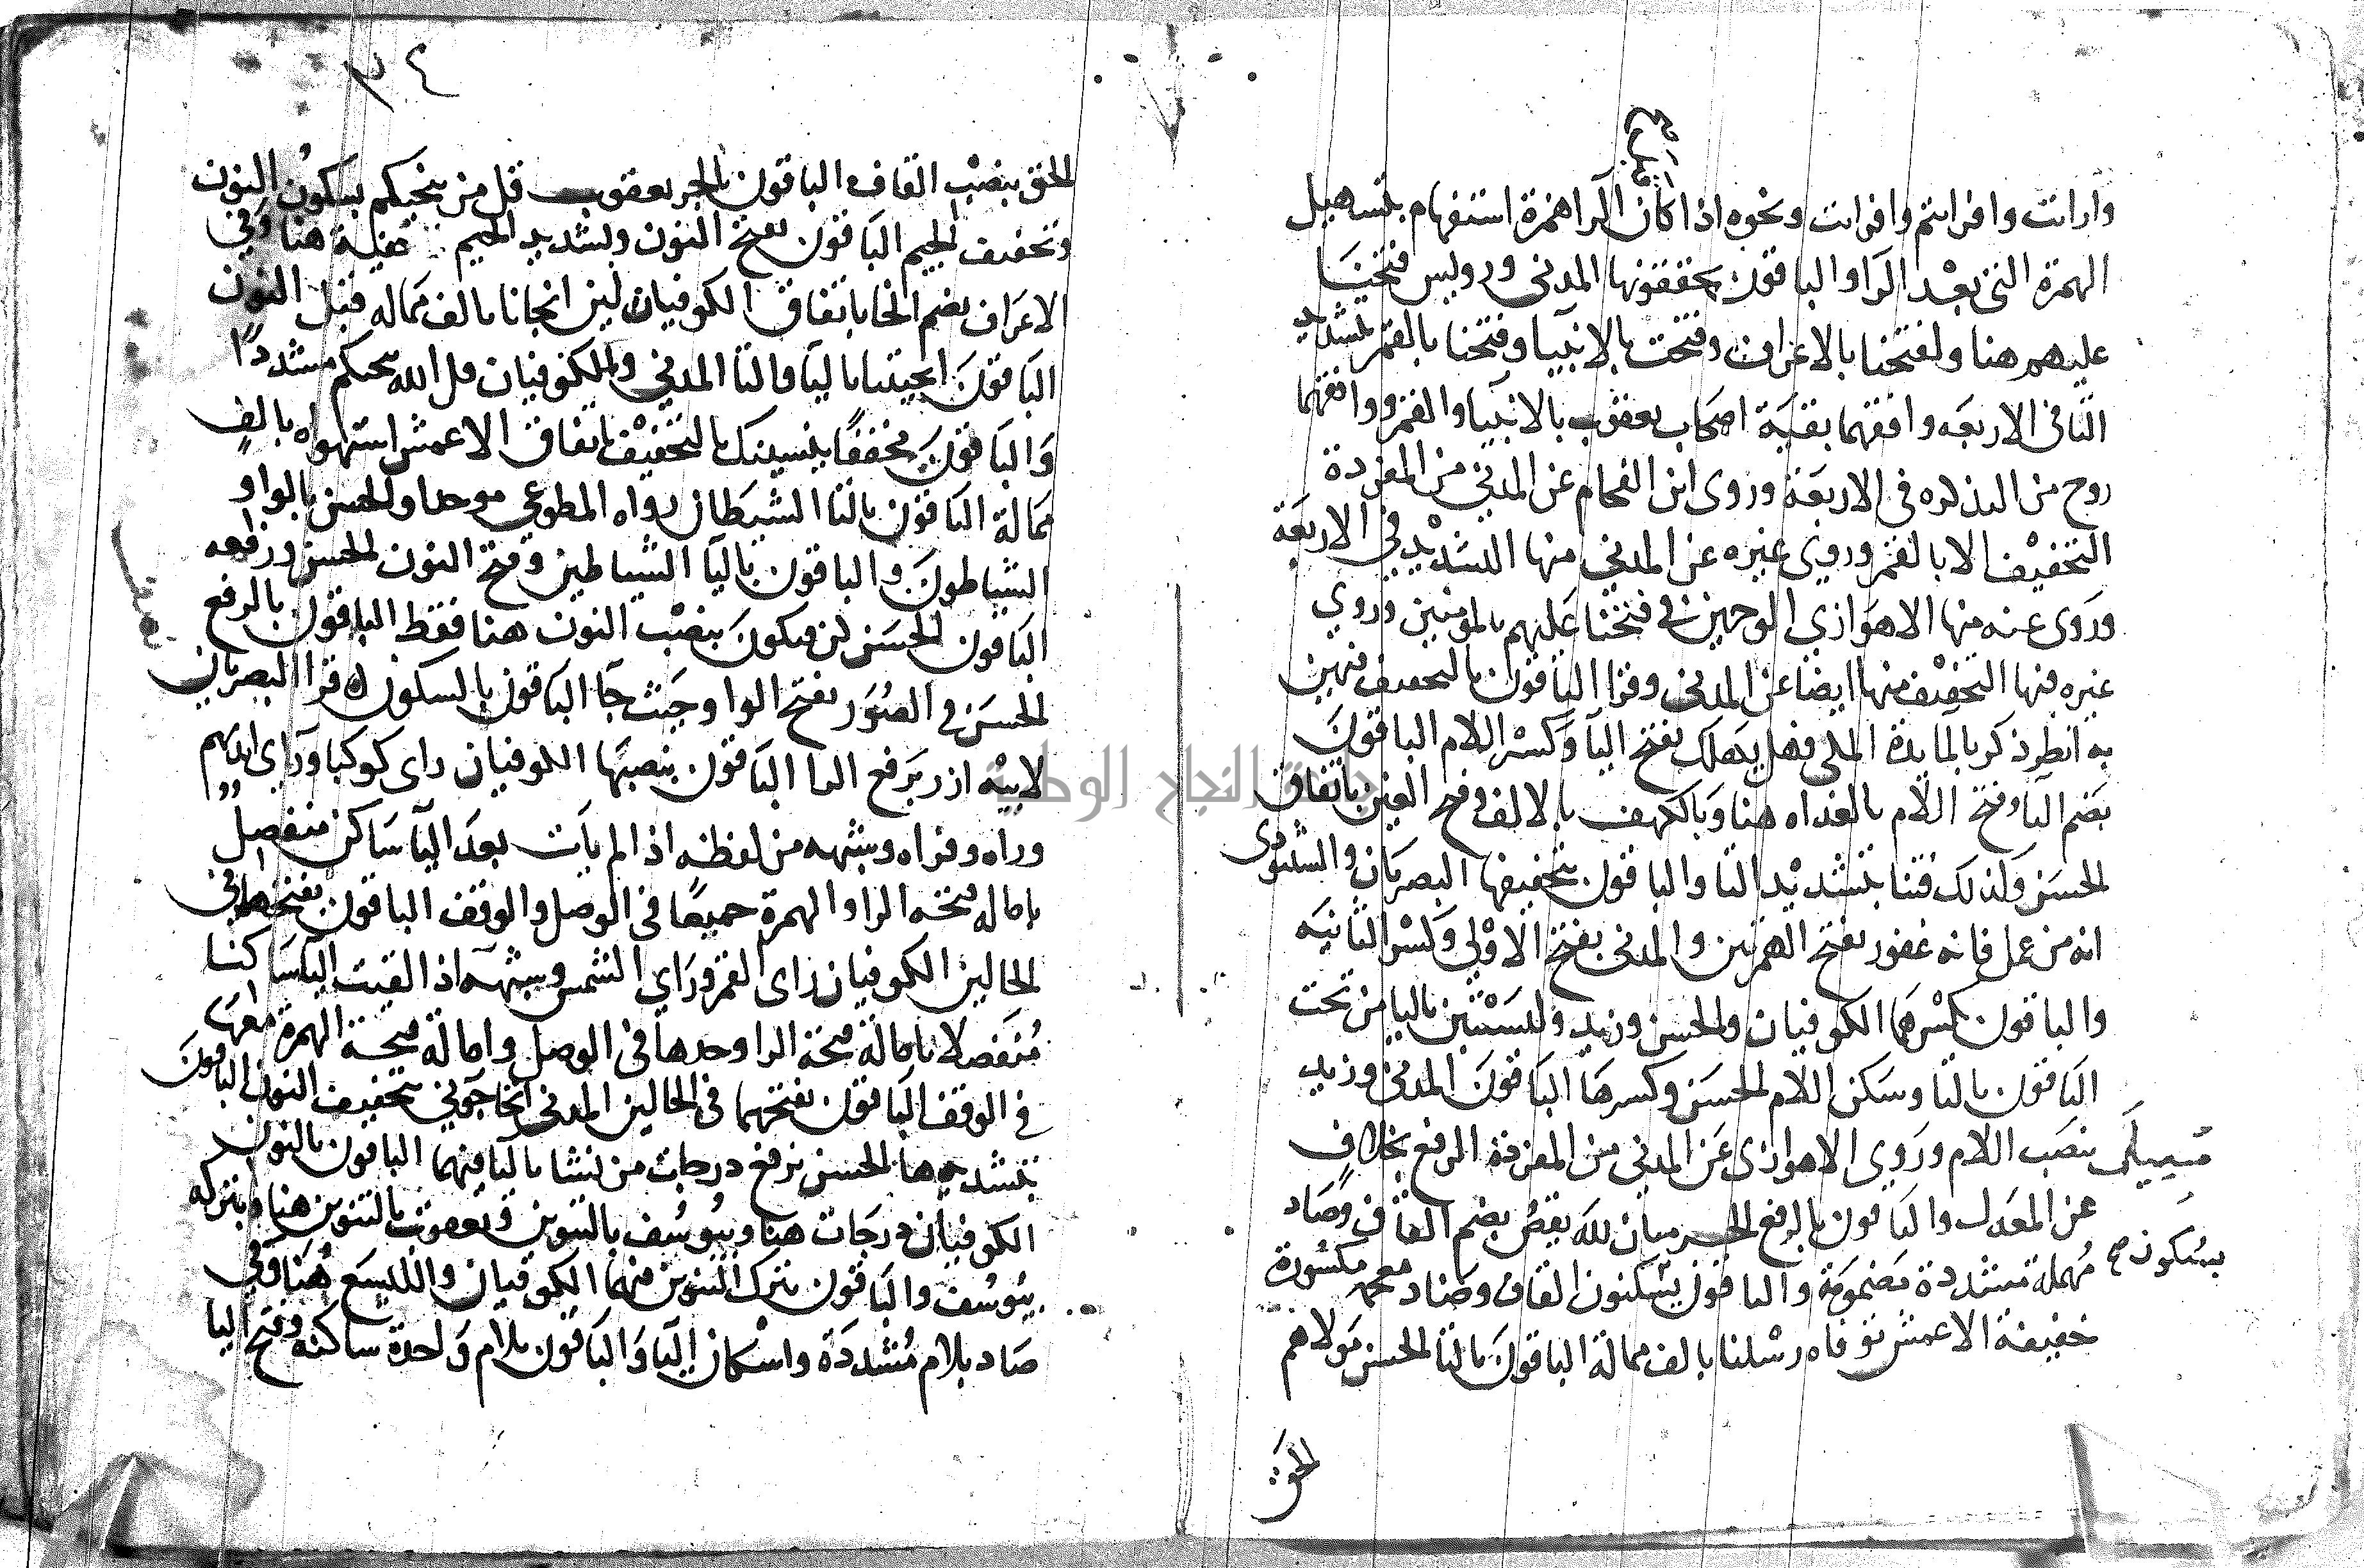 وارانت وافرانتم وافرانت ونحوه اذا كان الرا همزة استفهام بتسهيل
الهمزة التى بعد الرا والباقون يحققونها المدنى ورويس فتحنا
عليهم هنا ولفتحنا بالاعراف وفتحت بالانبيا وفتحنا بالقمر بتشديد
التا فى الاربعه وافقهما بقية اصحاب يعقوب بالانبيا والقمر ووافقهما
روح من التذكره فى الاربعة وروى ابن الفحام عن المدني من المفردة
التخفيف الا بالقمر وروى غيره عن المدني منها التشديد في الاربعة
وروى عنه منها الاهوازي الوجهين في فتحنا عليهم بالمومنين وروي
غيره فيها التخفيف منها ايضا عن المدنى وقرا الباقون بالتخفيف فيهن
به انظر ذكر بالمايدة المكى فهل يهلك بفتح اليا وكسر اللام الباقون
بضم اليا وفتح اللام بالغداه هنا وبالكهف بالالف وفتح الغين باتفاق
الحسن ولذلك فتنا بتشديد التا والباقون بتخفيفها البصريان والشنبوذى
انه من عمل فانه غفور بفتح الهمزتين والمدنى بفتح الاولى وكسر الثانيه
والباقون بكسرهما الكوفيان والحسن وزيد وليستبين باليا من تحت
الباقون بالتا وسكن اللام الحسن وكسرها الباقون المدنى وزيد
سبيل بنصب اللام وروى الاهوازى عن المدنى من المفردة الرفع بخلاف
عن المعدل والباقون بالرفع الحرميان لله يقص بضم القاف وصاد
مهملة مشددة مضمومة والباقون بسكون القاف وضاد معجمه مكسورة
بسكون
خفيفة الاعمش توفاه رسلنا بالف ممالة الباقون بالتا الحسن مولاهم
الحق
٣٤
الحق بنصب القاف الباقون بالجر يعقوب قل من ينجيكم بسكون النون
وتخفيف الجيم الباقون بفتح النون وتشديد الجيم هنا وفي
الاعراف بضم الخا باتفاق الكوفيان لين انجانا بالف ممالة قبل النون
الباقون انجيتنا باليا والتا المدني والكوفيان قل الله ينجيكم مشددا
والباقون مخففا ينسينك بالتخفيف باتفاق الاعمش استهواه بالف
ممالة الباقون بالتا الشيطان رواه المطوعي موحدا والحسن بالواو
الشياطون والباقون باليا الشياطين وفتح النون الحسن ورفعه
الباقون الحسن كن فيكون بنصب النون هنا فقط الباقون بالرفع
الحسن في الصور بفتح الواو حيث جا الباقون بالسكون قرا البصريان
لابيه ازر برفع الرا الباقون بنصبها الكوفيان راى كوكبا وراى ايديهم
وراه وفراه وشبهه من لفظه اذا لم يات بعد اليا ساكن منفصل
بامالة فتحه الرا والهمزة جميعا فى الوصل والوقف الباقون بفتحهما فى
الحالين الكوفيان راى القمر وراي الشمس وشبهه اذا لقيت اليا ساكنا
منفصلا بامالة فتحة الرا وحدها فى الوصل وامالة فتحة الهمزة معها
في الوقف الباقون بفتحهما فى الحالين المدنى اتحاجوني بتخفيف النون الباقون
بتشديدها الحسن يرفع درجات من يشا باليا فيهما الباقون بالنون
الكوفيان درجات هنا وبيوسف بالتنوين ويعقوب بالتنوين هنا وبتركه
بيوسف والباقون بترك التنوين فيهما الكوفيان والليسع هنا وفي
صاد بلام مشددة واسكان اليا والباقون بلام واحدة ساكنه وفتح اليا